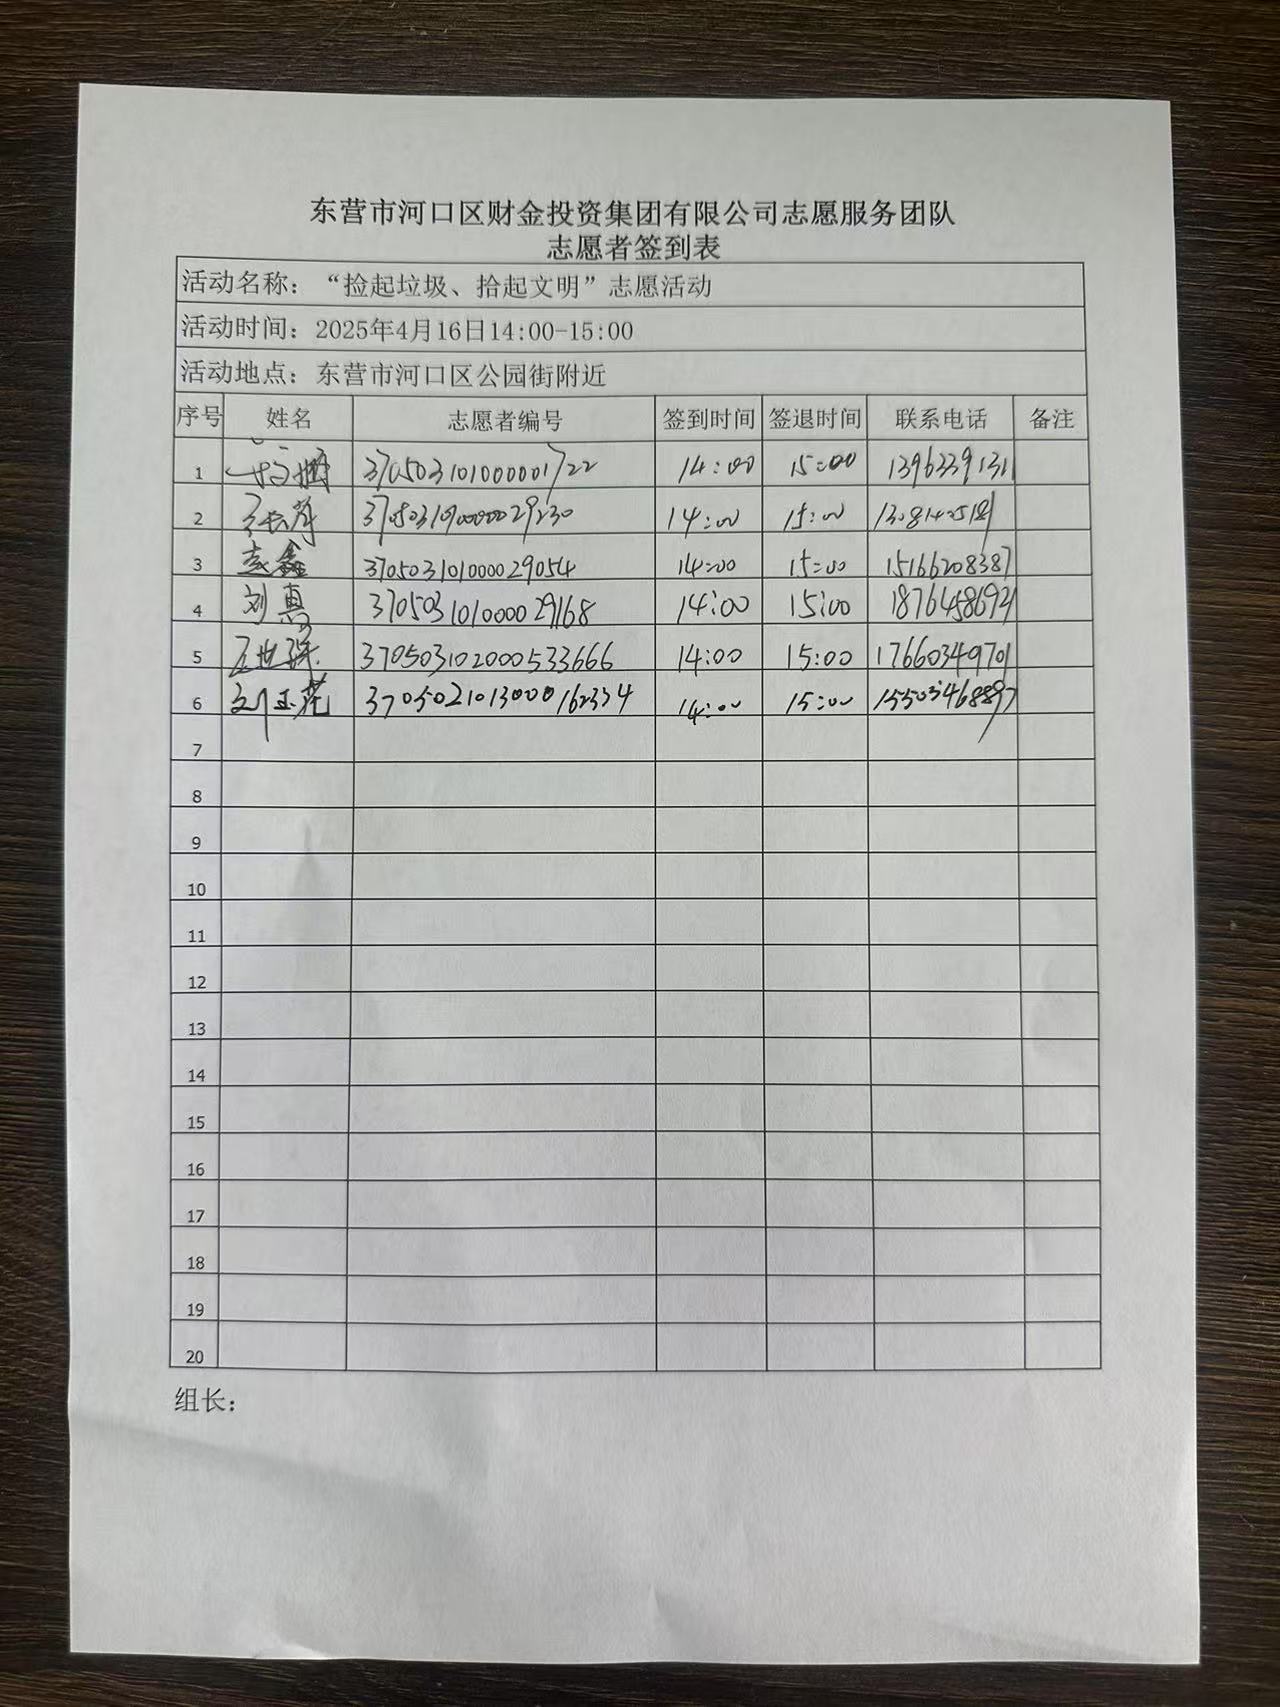 东营市河口区财金投资集团有限公司志愿服务团队
志愿者签到表
活动名称：“捡起垃圾、拾起文明”志愿活动
活动时间：2025年4月16日14:00-15:00
活动地点：东营市河口区公园街附近
序号 姓名 志愿者编号 签到时间 签退时间 联系电话 备注
1 3705031010000001722 14:00 15:00 1396339131
2 14:00 15:00
3 鑫 370503101000029054 14:00 15:00 15166208387
4 刘真 370503101000029168 14:00 15:00
5 3705031020000533666 14:00 15:00 17660349701
6 刘玉花 14:00 15:00 15503468897
7
8
9
10
11
12
13
14
15
16
17
18
19
20
组长：